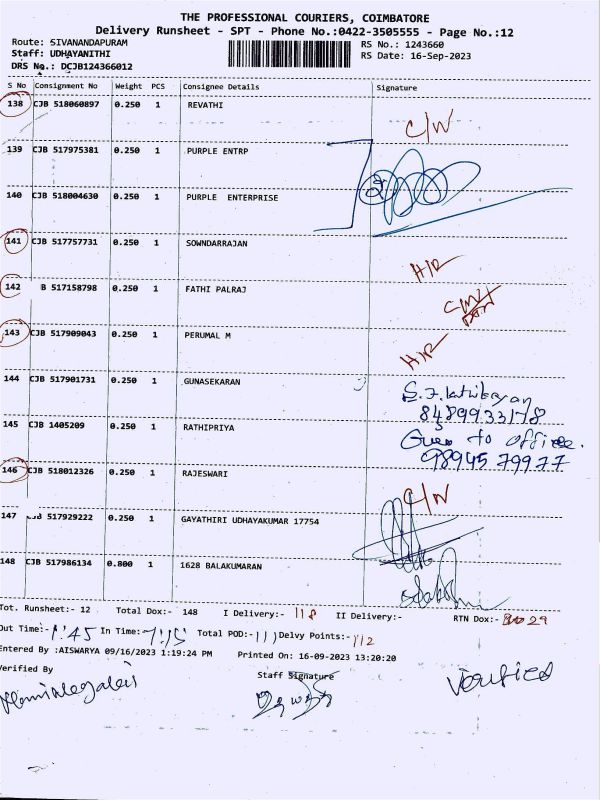 THE PROFESSIONAL COURIERS, COIMBATORE
Delivery Runsheet - SPT - Phone No.:0422-3505555 - Page No.:12
Route: SIVANANDAPURAM RS No.: 1243660
Staff: UDHAYANITHI RS Date: 16-Sep-2023
DRS No.: DCJB124366012
S No Consignment No Weight PCS Consignee Details Signature
138 CJB 518060897 0.250 1 REVATHI
C/W
139 CJB 517975381 0.250 1 PURPLE ENTRP
140 CJB 518004630 0.250 1 PURPLE ENTERPRISE
141 CJB 517757731 0.250 1 SOWNDARRAJAN
H/R
142 B 517158798 0.250 1 FATHI PALRAJ
143 CJB 517909043 0.250 1 PERUMAL M
H/R
144 CJB 517901731 0.250 1 GUNASEKARAN
8489933178
145 CJB 1405209 0.250 1 RATHIPRIYA
to office.
98945 79977
146 CJB 518012326 0.250 1 RAJESWARI
C/W
147 517929222 0.250 1 GAYATHIRI UDHAYAKUMAR 17754
148 CJB 517986134 0.800 1 1628 BALAKUMARAN
Tot. Runsheet:- 12 Total Dox:- 148 I Delivery:- 118 II Delivery:- RTN Dox:- 29
Out Time:- 1:45 In Time:- 7:15 Total POD:- 111 Delvy Points:- 112
Entered By :AISWARYA 09/16/2023 1:19:24 PM Printed On: 16-09-2023 13:20:20
Verified By Staff Signature
Verified